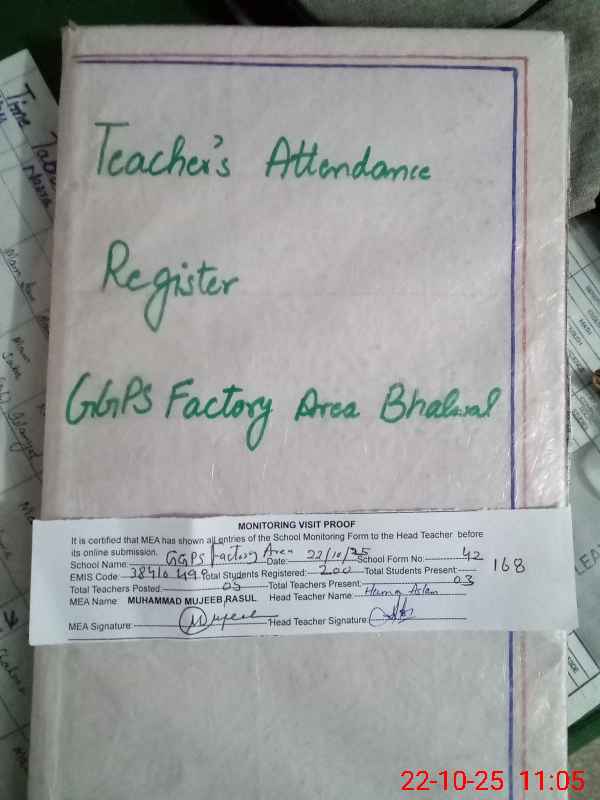 Teacher's Attendance
Register
GGPS Factory Area Bhalwal
MONITORING VISIT PROOF
It is certified that MEA has shown all entries of the School Monitoring Form to the Head Teacher before
its online submission.
School Name: GGPS Factory Area Date: 22/10/25 School Form No: 42
EMIS Code: 38410 Total Students Registered: 200 Total Students Present: 168
Total Teachers Posted: 03 Total Teachers Present: 03
MEA Name MUHAMMAD MUJEEB RASUL Head Teacher Name: Huma Aslam
MEA Signature: Mujeeb Head Teacher Signature:
Time Table
22-10-25 11:05